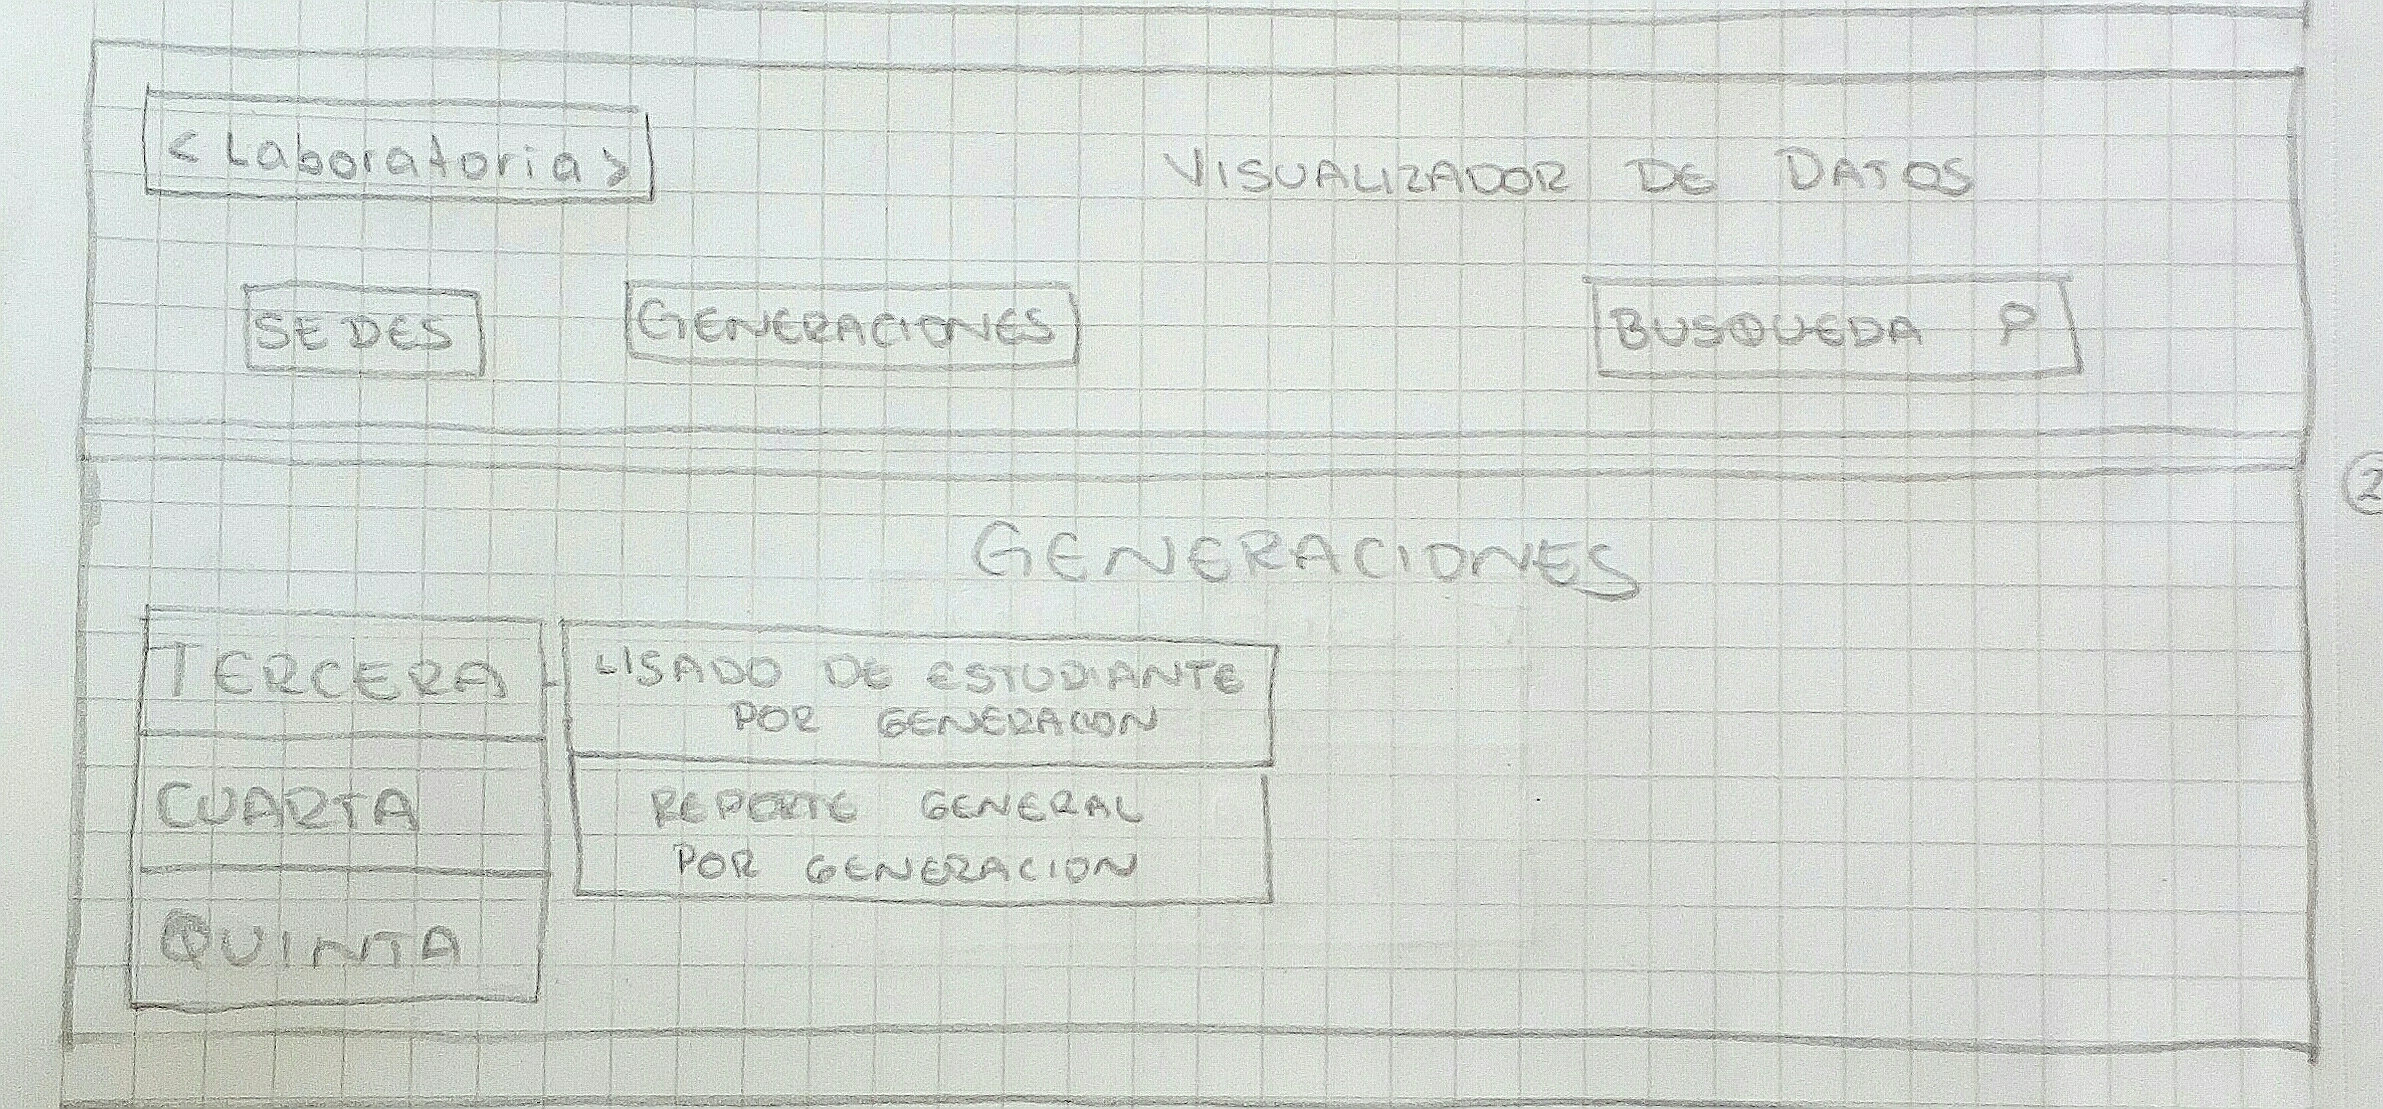 <Laboratoria>
VISUALIZADOR DE DATOS
SEDES
GENERACIONES
BUSQUEDA
2
GENERACIONES
TERCERA
LISADO DE ESTUDIANTE
POR GENERACON
CUARTA
REPORTE GENERAL
POR GENERACION
QUINTA